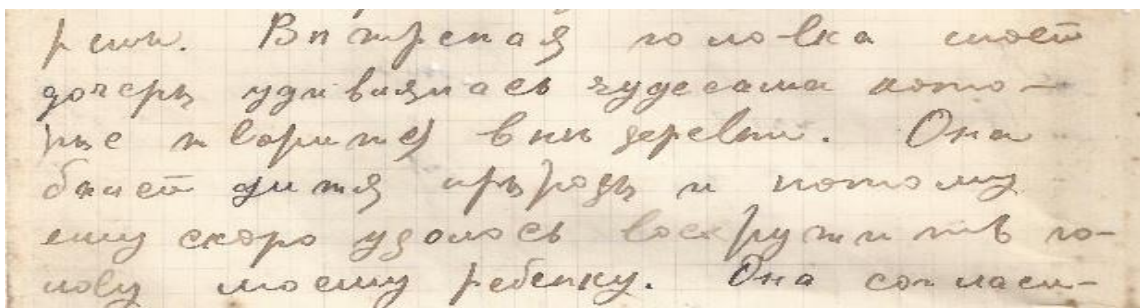 рени. Ветреная головка моей
дочеры удивлялась чудесами кото-
рые творитеј вны деревни. Она
била дитя прыроды и потому
ему скоро удолось воскружить го-
лову моему ребенку. Она согласи-